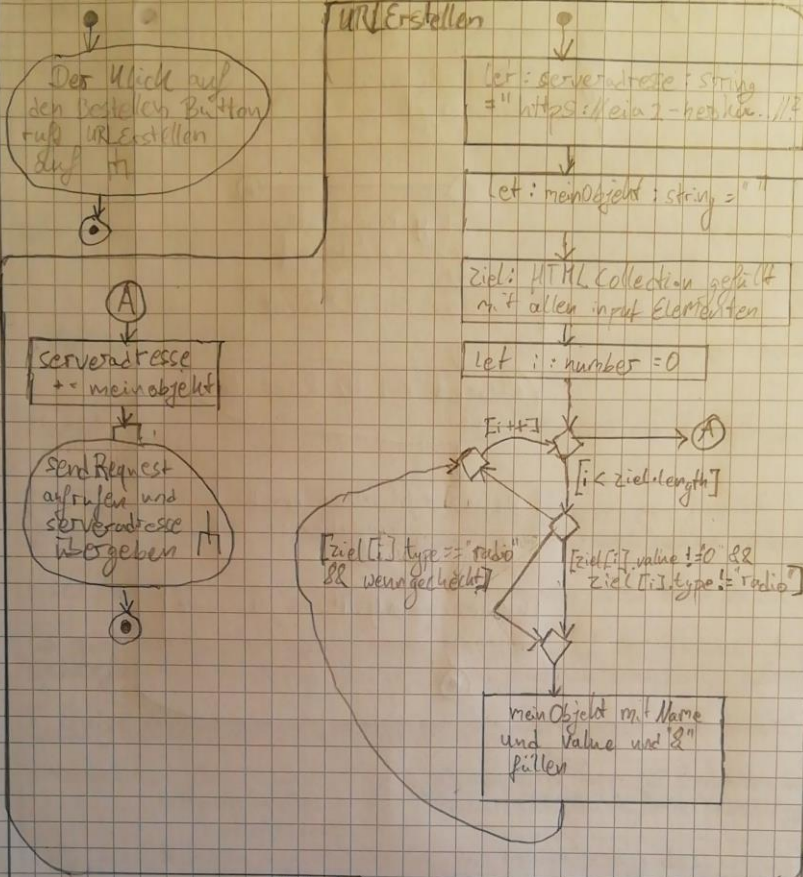 Der Klick auf
den Bestellen Button
ruft URLErstellen
auf
URLErstellen
let : serveradresse : string
="https://eia2-
let : meinObjekt : string = " "
ziel: HTMLCollection gefüllt
mit allen input Elementen
let i : number =0
[i++]
A
[i< ziel.length]
[ziel[i].type =="radio"
&& wenn gecheckt]
[ziel[i].value !=0 &&
ziel[i].type !="radio"]
meinObjekt mit Name
und Value und "&"
füllen
A
serveradresse
+= meinobjekt
sendRequest
aufrufen und
serveradresse
übergeben